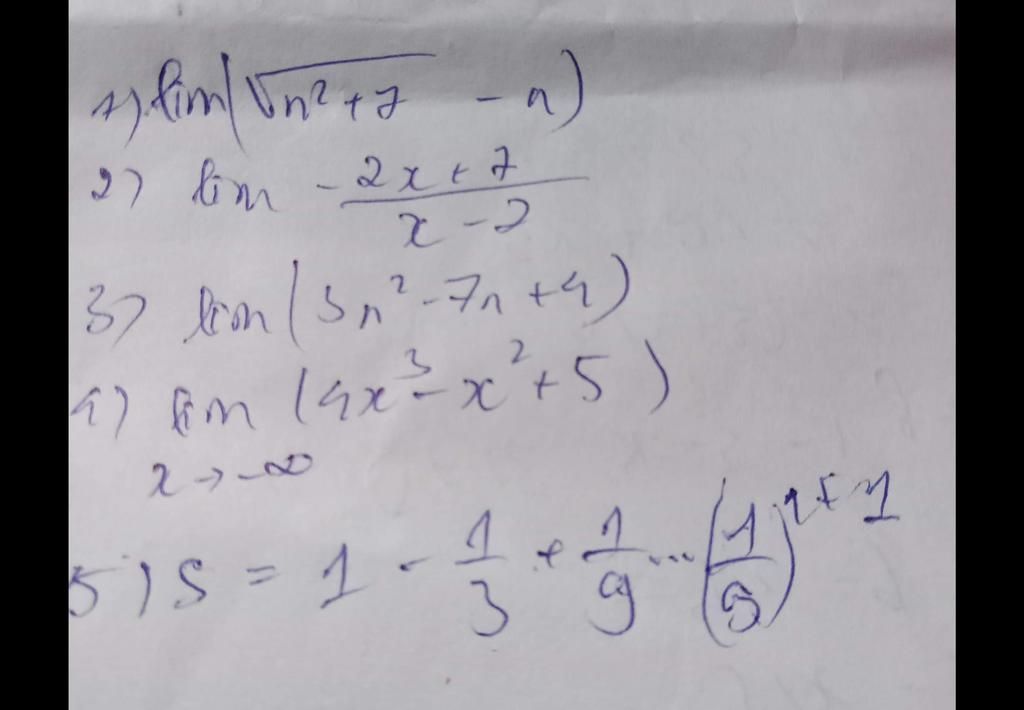 1) lim(√(n²+7) - n)
2) lim (-2x+7)/(x-2)
3) lim(3n²-7n+4)
4) lim (4x³-x²+5)
x→-∞
5) S = 1 - 1/3 + 1/9 ... (1/9)ⁿ⁺¹